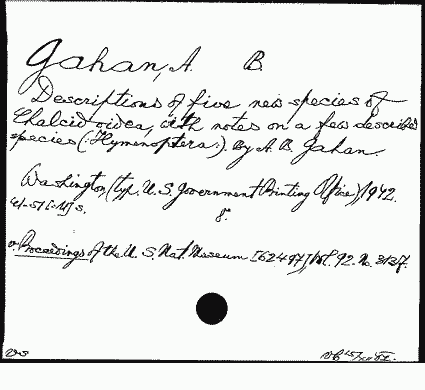 Gahan, A. B.
Descriptions of five new species of
Chalcidoidea, with notes on a few described
species (:Hymenoptera:). By A. B. Gahan.
Washington, (typ. U. S. Government Printing Office), 1942.
41-51 [-1] s. 8°.
v. Proceedings of the U. S. Nat. Museum [62497] Vol. 92. No. 3137.